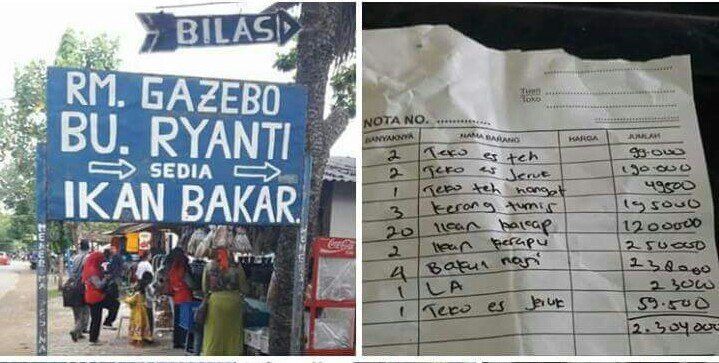 BILAS
RM. GAZEBO
BU. RYANTI
SEDIA
IKAN BAKAR.
Coca-Cola
Tuan
Toko
NOTA NO.
BANYAKNYA NAMA BARANG HARGA JUMLAH
2 Teko es teh 99.000
2 Teko es jeruk 190.000
1 Teko teh hangat 49500
3 Kerang tumis 195000
20 Ikan kakap 1200000
2 Ikan kerapu 250000
4 Bakul nasi 238000
1 LA 23000
1 Teko es jeruk 59.500
2.304000